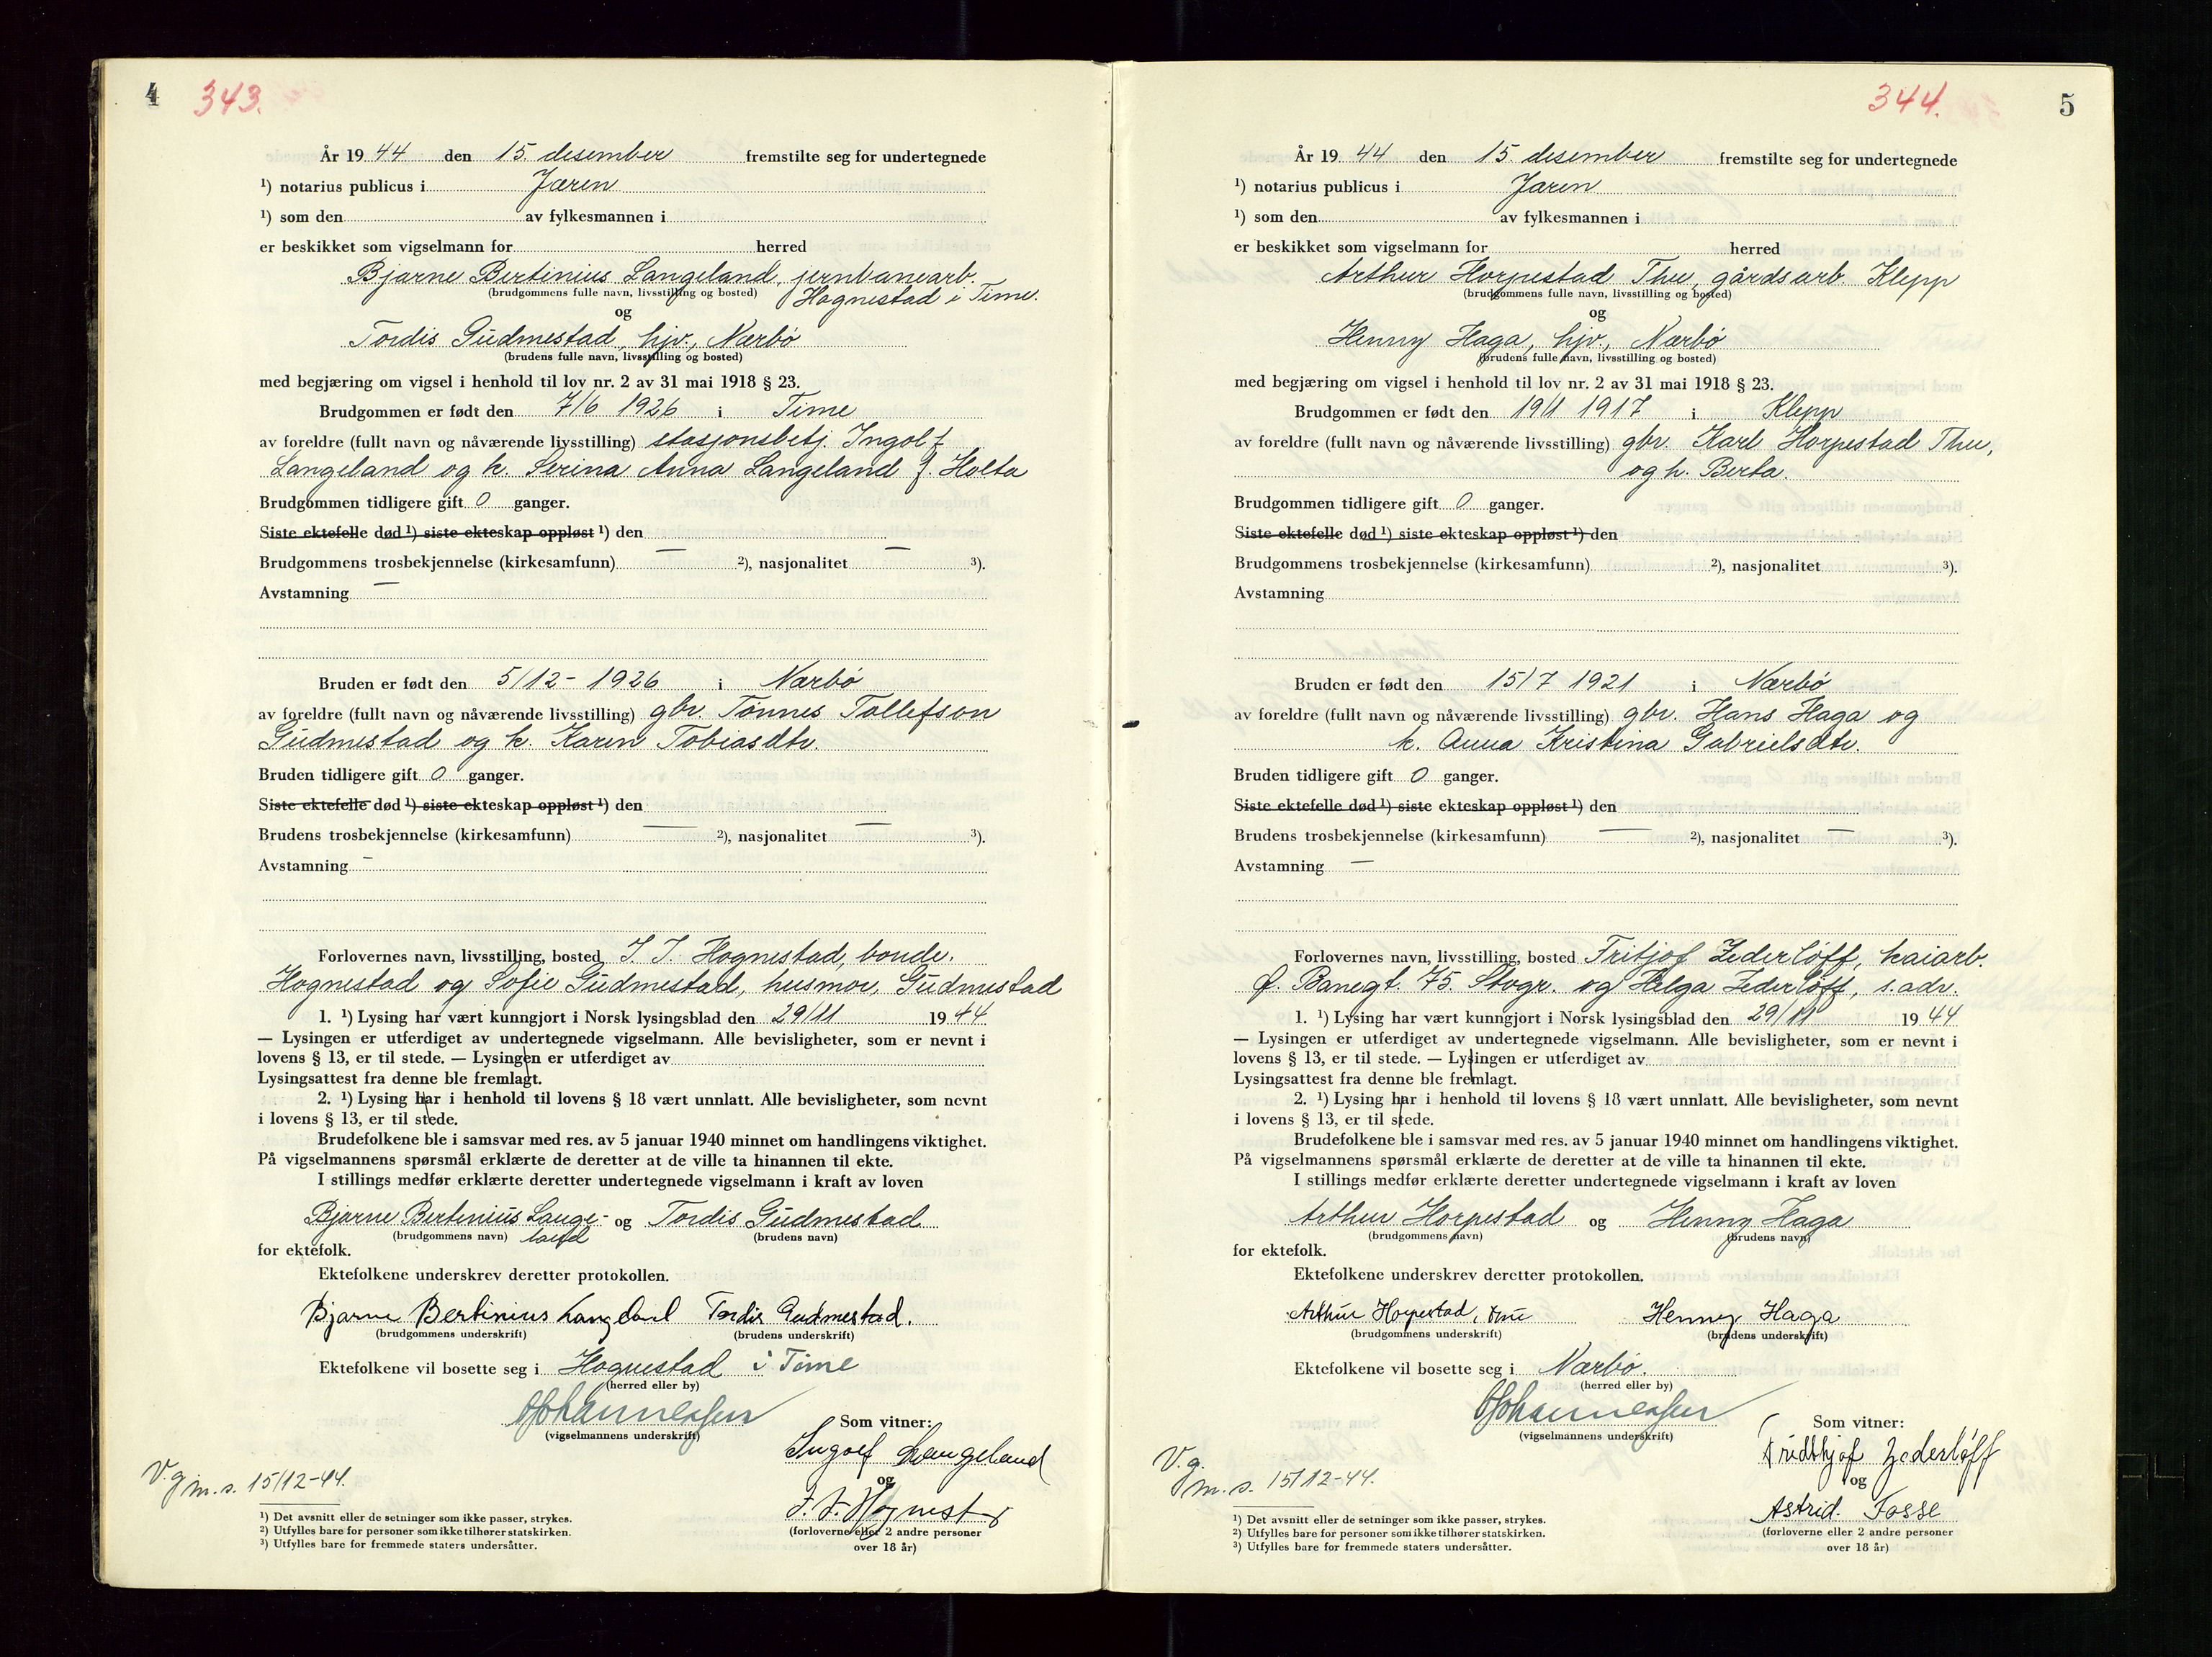 4 343.
År 1944 den 15. desember fremstilte seg for undertegnede
¹) notarius publicus i Jæren
¹) som den av fylkesmannen i
er beskikket som vigselmann for herred
Bjarne Bertinius Langeland, jernbanearb.
(brudgommens fulle navn, livsstilling og bosted) Hognestad i Time.
og
Tordis Gudmestad, hjv., Nærbø
(brudens fulle navn, livsstilling og bosted)
med begjæring om vigsel i henhold til lov nr. 2 av 31 mai 1918 § 23.
Brudgommen er født den 7/6 1926 i Time
av foreldre (fullt navn og nåværende livsstilling) stasjonsbetj. Ingolf
Langeland og h. Serina Anna Langeland f. Holta
Brudgommen tidligere gift 0 ganger.
Siste ektefelle død ¹) siste ekteskap oppløst ¹) den
Brudgommens trosbekjennelse (kirkesamfunn) — ²), nasjonalitet — ³).
Avstamning —
Bruden er født den 5/12 - 1926 i Nærbø
av foreldre (fullt navn og nåværende livsstilling) gbr. Tønnes Tollefson
Gudmestad og h. Karen Tobiasdtr.
Bruden tidligere gift 0 ganger.
Siste ektefelle død ¹) siste ekteskap oppløst ¹) den
Brudens trosbekjennelse (kirkesamfunn) — ²), nasjonalitet — ³).
Avstamning —
Forlovernes navn, livsstilling, bosted J. J. Hognestad, bonde.
Hognestad og Sofie Gudmestad, husmor, Gudmestad
1. ¹) Lysing har vært kunngjort i Norsk lysingsblad den 29/11 1944
— Lysingen er utferdiget av undertegnede vigselmann. Alle bevisligheter, som er nevnt i
lovens § 13, er til stede. — Lysingen er utferdiget av
Lysingsattest fra denne ble fremlagt.
2. ¹) Lysing har i henhold til lovens § 18 vært unnlatt. Alle bevisligheter, som nevnt
i lovens § 13, er til stede.
Brudefolkene ble i samsvar med res. av 5 januar 1940 minnet om handlingens viktighet.
På vigselmannens spørsmål erklærte de deretter at de ville ta hinannen til ekte.
I stillings medfør erklærte deretter undertegnede vigselmann i kraft av loven
Bjarne Bertinius Lange- og Tordis Gudmestad
(brudgommens navn) land (brudens navn)
for ektefolk.
Ektefolkene underskrev deretter protokollen.
Bjarne Bertinius Langeland Tordis Gudmestad.
(brudgommens underskrift) (brudens underskrift)
Ektefolkene vil bosette seg i Hognestad i Time
(herred eller by)
(vigselmannens underskrift)
Som vitner:
Ingolf Langeland
og
J. J. Hognestad
(forloverne eller 2 andre personer
over 18 år)
V.g
m. s. 15/12-44.
¹) Det avsnitt eller de setninger som ikke passer, strykes.
²) Utfylles bare for personer som ikke tilhører statskirken.
³) Utfylles bare for fremmede staters undersåtter.
344. 5
År 1944 den 15. desember fremstilte seg for undertegnede
¹) notarius publicus i Jæren
¹) som den av fylkesmannen i
er beskikket som vigselmann for herred
Arthur Horpestad Thu, gårdsarb. Klepp
(brudgommens fulle navn, livsstilling og bosted)
og
Henny Haga, hjv., Nærbø
(brudens fulle navn, livsstilling og bosted)
med begjæring om vigsel i henhold til lov nr. 2 av 31 mai 1918 § 23.
Brudgommen er født den 19/1 1917 i Klepp
av foreldre (fullt navn og nåværende livsstilling) gbr. Karl Horpestad Thu,
og h. Berta.
Brudgommen tidligere gift 0 ganger.
Siste ektefelle død ¹) siste ekteskap oppløst ¹) den
Brudgommens trosbekjennelse (kirkesamfunn) ²), nasjonalitet ³).
Avstamning
Bruden er født den 15/7 1921 i Nærbø
av foreldre (fullt navn og nåværende livsstilling) gbr. Hans Haga og
h. Anna Kristina Gabrielsdtr.
Bruden tidligere gift 0 ganger.
Siste ektefelle død ¹) siste ekteskap oppløst ¹) den
Brudens trosbekjennelse (kirkesamfunn) — ²), nasjonalitet — ³).
Avstamning —
Forlovernes navn, livsstilling, bosted Fritjof Zederløff, kaiarb.
Ø. Banegt. 75. Stvgr. og Helga Zederløff, s. adr.
1. ¹) Lysing har vært kunngjort i Norsk lysingsblad den 29/11 1944
— Lysingen er utferdiget av undertegnede vigselmann. Alle bevisligheter, som er nevnt i
lovens § 13, er til stede. — Lysingen er utferdiget av
Lysingsattest fra denne ble fremlagt.
2. ¹) Lysing har i henhold til lovens § 18 vært unnlatt. Alle bevisligheter, som nevnt
i lovens § 13, er til stede.
Brudefolkene ble i samsvar med res. av 5 januar 1940 minnet om handlingens viktighet.
På vigselmannens spørsmål erklærte de deretter at de ville ta hinannen til ekte.
I stillings medfør erklærte deretter undertegnede vigselmann i kraft av loven
Arthur Horpestad og Henny Haga
(brudgommens navn) (brudens navn)
for ektefolk.
Ektefolkene underskrev deretter protokollen.
Arthur Horpestad, Henny Haga
(brudgommens underskrift) (brudens underskrift)
Ektefolkene vil bosette seg i Nærbø.
(herred eller by)
(vigselmannens underskrift)
Som vitner:
Fridthjof Zederløff
og
Astrid. Fosse
(forloverne eller 2 andre personer
over 18 år)
V. g.
m. s. 15/12-44.
¹) Det avsnitt eller de setninger som ikke passer, strykes.
²) Utfylles bare for personer som ikke tilhører statskirken.
³) Utfylles bare for fremmede staters undersåtter.